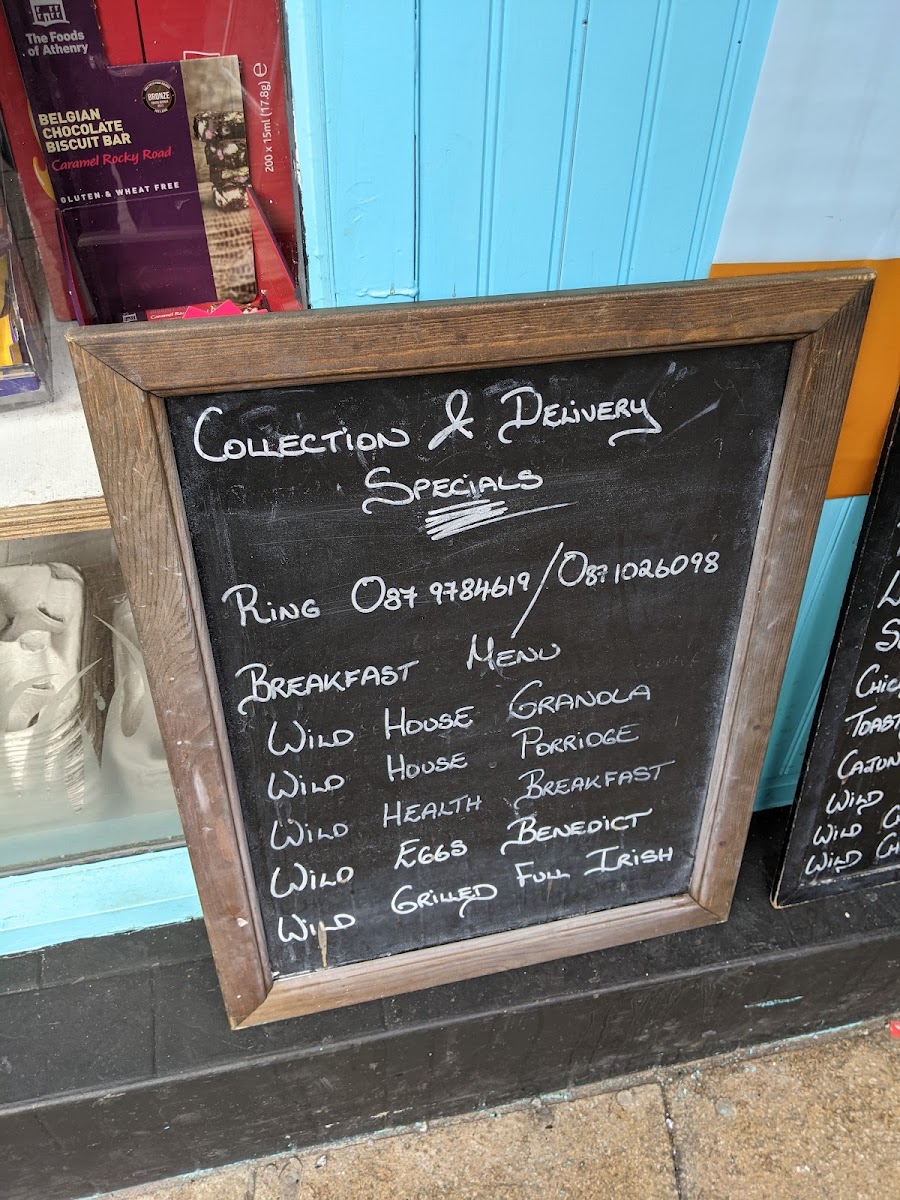 The Foods
of Athenry
BRONZE
BELGIAN
CHOCOLATE
BISCUIT BAR
Caramel Rocky Road
GLUTEN & WHEAT FREE
200 x 15ml (17.8g) e
COLLECTION & DELIVERY
SPECIALS
RING 087 9784619/0871026098
BREAKFAST MENU
WILD HOUSE GRANOLA
WILD HOUSE PORRIDGE
WILD HEALTH BREAKFAST
WILD EGGS BENEDICT
WILD GRILLED FULL IRISH
TOAST
CAJUN
WILD
WILD
WILD